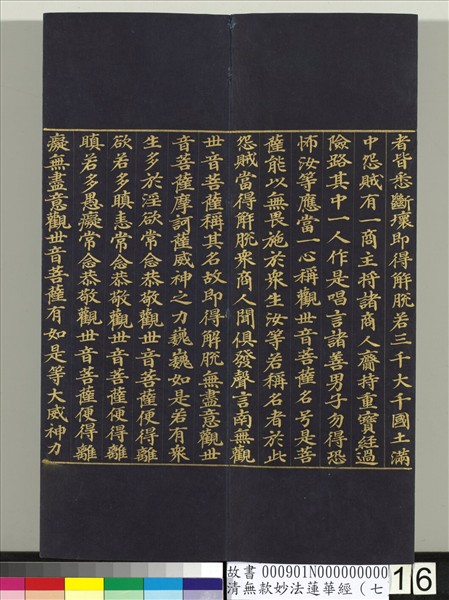 者皆悉斷壞即得解脫若三千大千國土滿
中怨賊有一商主將諸商人齎持重寶經過
險路其中一人作是唱言諸善男子勿得恐
怖汝等應當一心稱觀世音菩薩名号是菩
薩能以無畏施於衆生汝等若稱名者於此
怨賊當得解脫衆商人聞俱發聲言南無觀
世音菩薩稱其名故即得解脫無盡意觀世
音菩薩摩訶薩威神之力巍巍如是若有衆
生多於淫欲常念恭敬觀世音菩薩便得離
欲若多瞋恚常念恭敬觀世音菩薩便得離
瞋若多愚癡常念恭敬觀世音菩薩便得離
癡無盡意觀世音菩薩有如是等大威神力
故書 000901N000000000
清無款妙法蓮華經（七
16